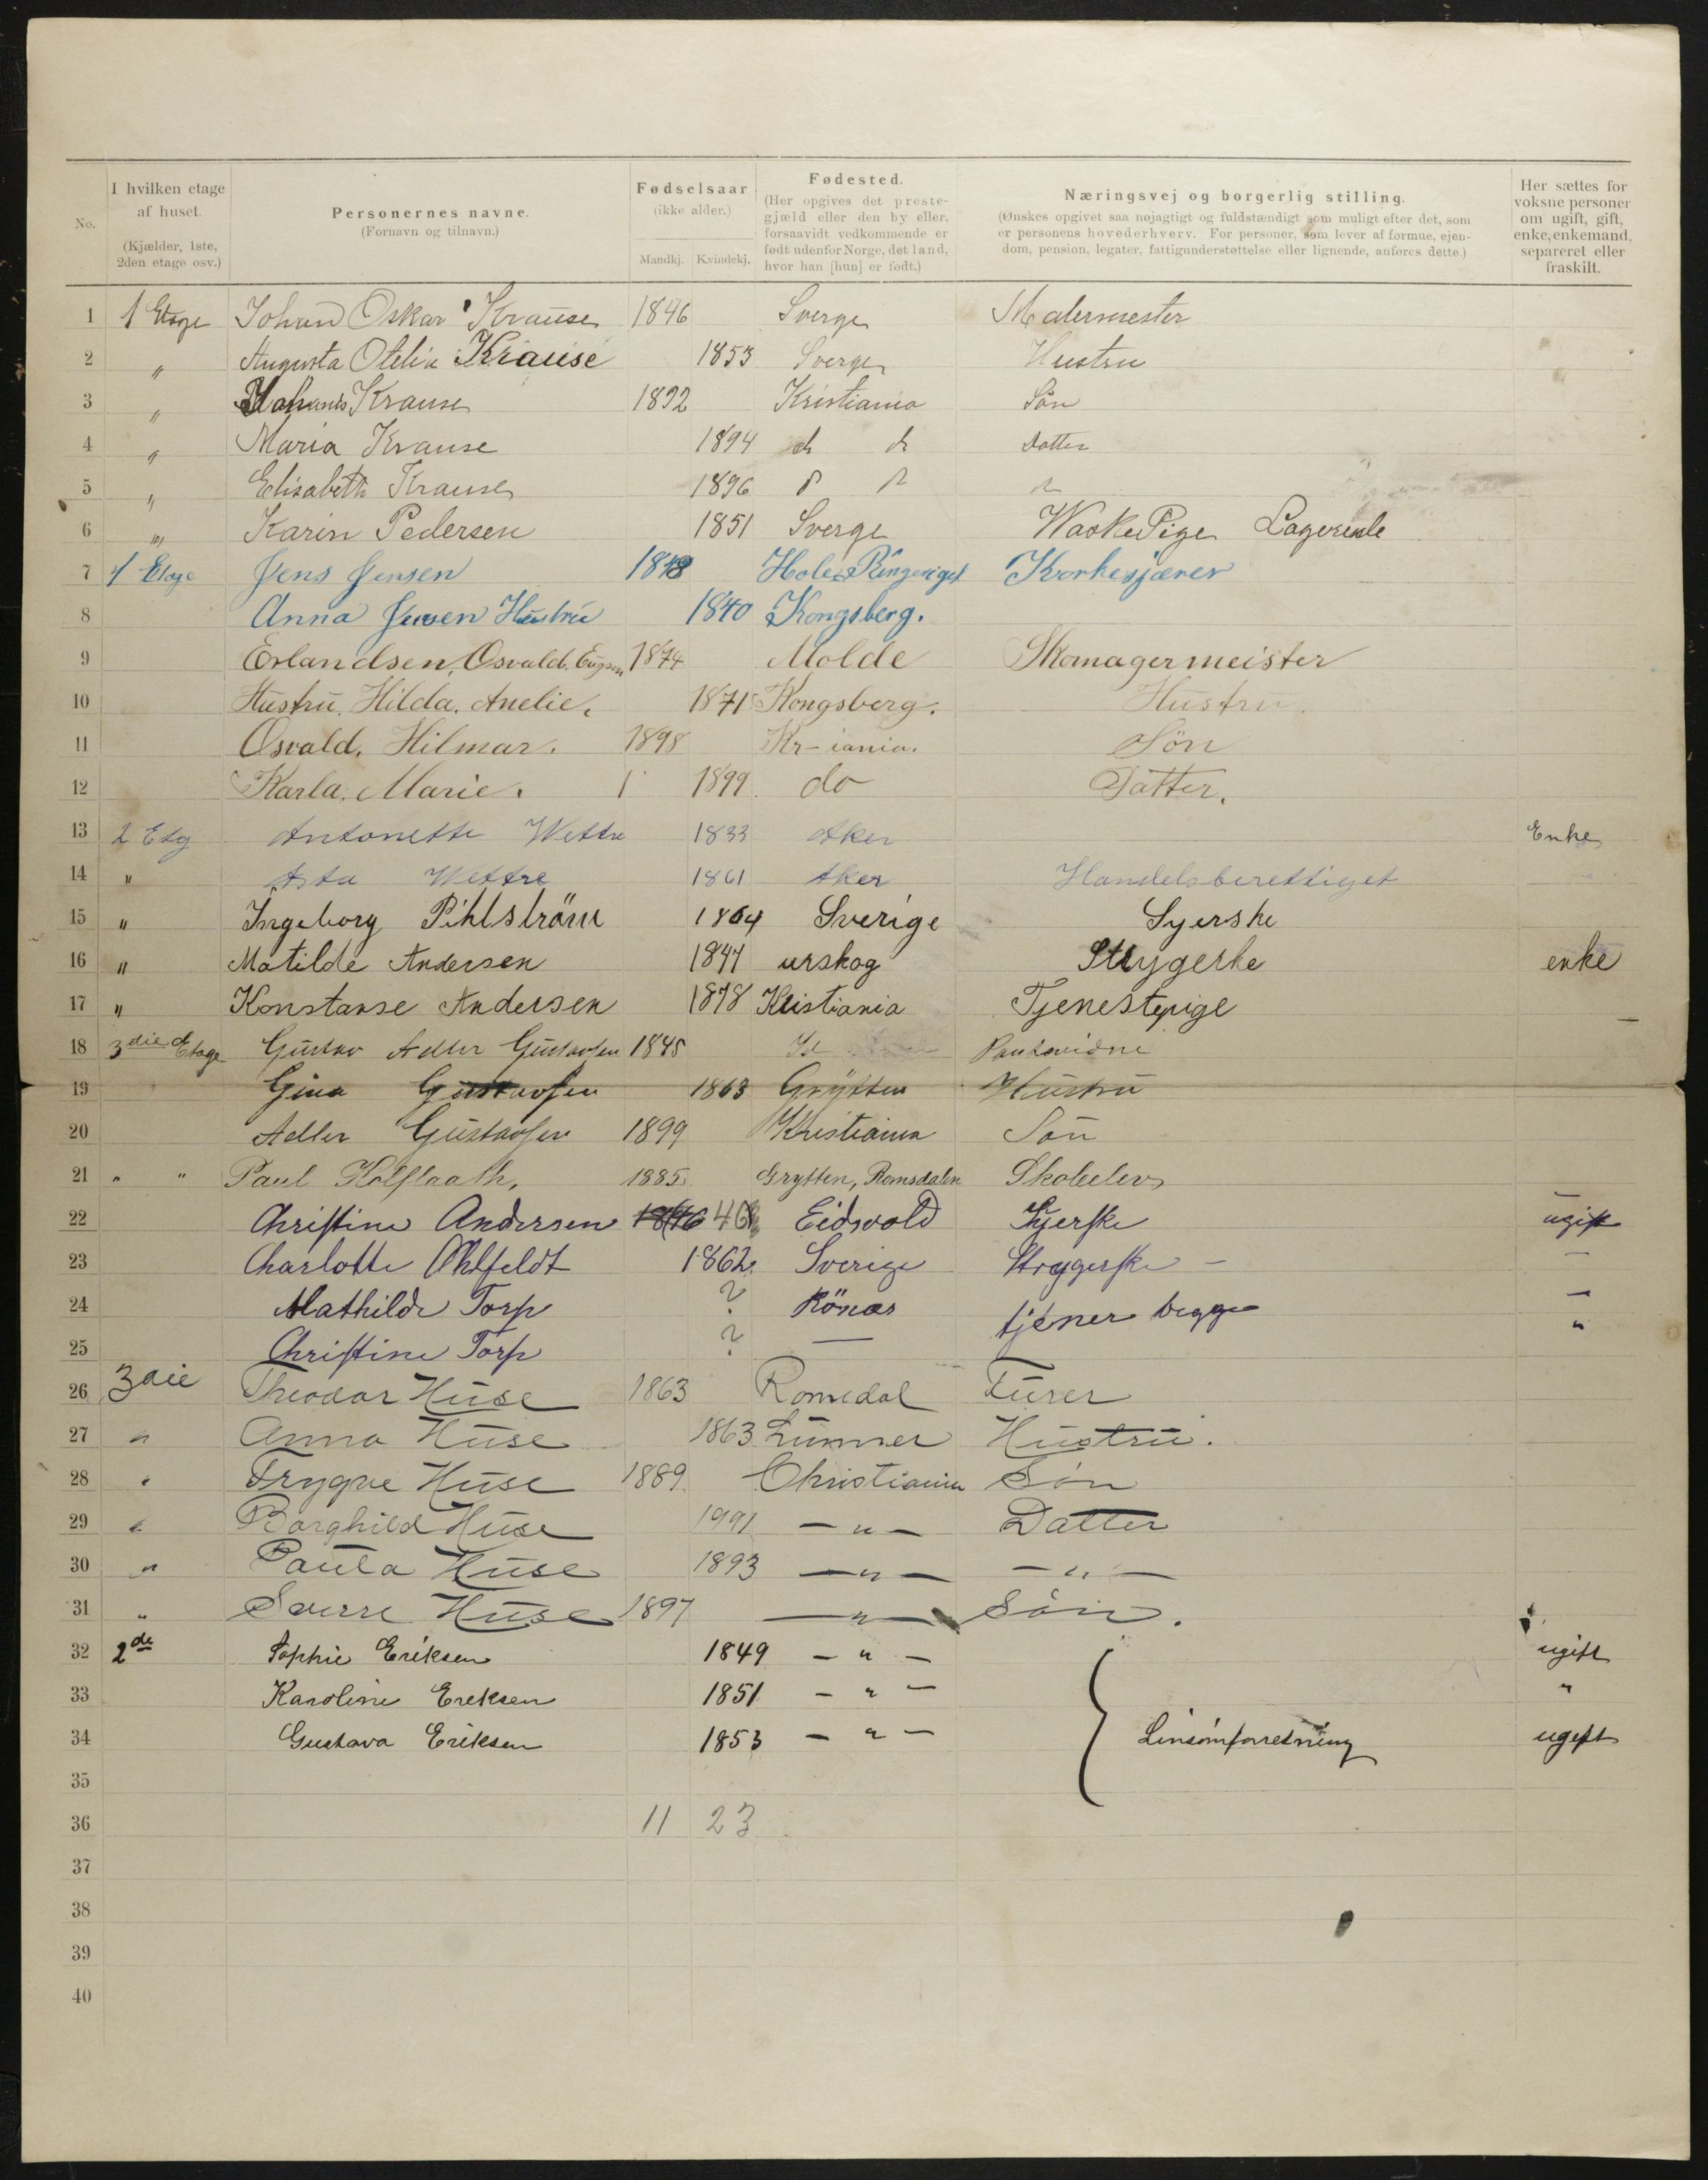 No.
I hvilken etage af huset.
(Kjælder, 1ste, 2den etage osv.)
Personernes navne.
(Fornavn og tilnavn.)
Fødselsaar
(ikke alder.)
Mandkj. Kvindekj.
Fødested.
(Her opgives det prestegjæld eller den by eller, forsaavidt vedkommende er født udenfor Norge, det land, hvor han [hun] er født.)
Næringsvej og borgerlig stilling.
(Ønskes opgivet saa nøjagtigt og fuldstændigt som muligt efter det, som er personens hovederhverv. For personer, som lever af formue, ejendom, pension, legater, fattigunderstøttelse eller lignende, anføres dette.)
Her sættes for voksne personer om ugift, gift, enke, enkemand, separeret eller fraskilt.
1 1 Etage Johan Oskar Krause 1846 Sverge Malermester
2 " Augusta Otelia Krause 1853 Sverge Hustru
3 " Johanes Krause 1892 Kristiania Søn
4 " Maria Krause 1894 d d Datter
5 " Elisabeth Krause 1896
6 " Karin Pedersen 1851 Sverge WaskePige
7 1 Etage Jens Jensen Hole Ringeriget
8 Anna Jensen Hustru 1840 Kongsberg.
9 Erlandsen, Osvald. 1874 Molde Skomagermeister
10 Hustru. Hilda. Amelie. 1871 Kongsberg. Hustru.
11 Osvald. Hilmar. 1898 Kr-iania. Sön
12 Karla. Marie. 1 1899 do Datter.
13 2 Etg Antonette Wettre 1833 Aker Enke
14 " Asta Wettre 1861 Aker Handelsberettiget
15 " Ingeborg Pihlström 1864 Sverige Syerske
16 " Matilde Andersen 1847 urskog Strygerke enke
17 " Konstanse Andersen 1878 Kristiania Tjenestepige
18 3die Etage Gustav Adler Gustavsen 1845
19 Gina Gustavsen 1863 Grytten Hustru
20 Adler Gustavsen 1899 Kristiania Søn
21 " " Paul 1885. Grytten, Romsdalen Skoleelev
22 Christine Andersen 1846 46 Eidsvold Syerske ugift
23 Charlotte Ohlfeldt 1862 Sverige Strygerske – –
24 Mathilde Torp ? Hönæs tjener begge –
25 Christine Torp ? — "
26 3die Theodor Huse 1863 Romedal Turer
27 " Anna Huse 1863 Lunner Hustru.
28 " Trygve Huse 1889 Christiania Søn
29 " Borghild Huse 1991 — " — Datter
30 " Paula Huse 1893 — " — — " —
31 " Sverre Huse 1897 — " — Søn.
32 2de Sophie Eriksen 1849 – " – ugift
33 Karoline Ereksen 1851 – " – "
34 Gustava Eriksen 1853 – " – Linsömforretning ugift
35
36 11 23
37
38
39
40